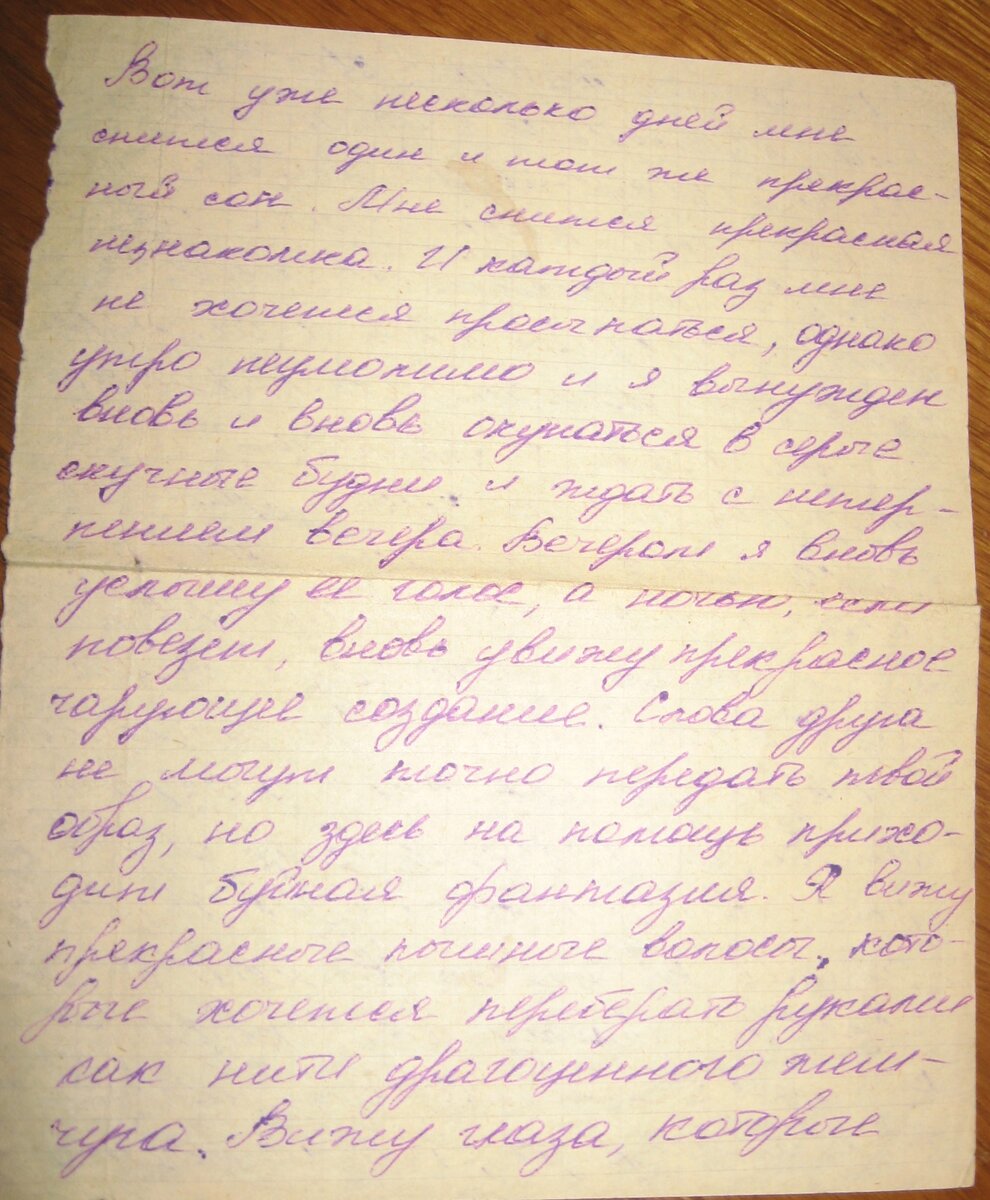 Вот уже несколько дней мне
снится один и тот же прекрас-
ный сон. Мне снится прекрасная
незнакомка. И каждый раз мне
не хочется просыпаться, однако
утро неумолимо и я вынужден
вновь и вновь окунаться в серые
скучные будни и ждать с нетер-
пением вечера. Вечером я вновь
услышу ее голос, а ночью, если
повезет, вновь увижу прекрасное
чарующее создание. Слова друга
не могут точно передать твой
образ, но здесь на помощь прихо-
дит буйная фантазия. Я вижу
прекрасные пышные волосы, кото-
рые хочется переберать руками
как нити драгоценного жем-
чуга. Вижу глаза, которые